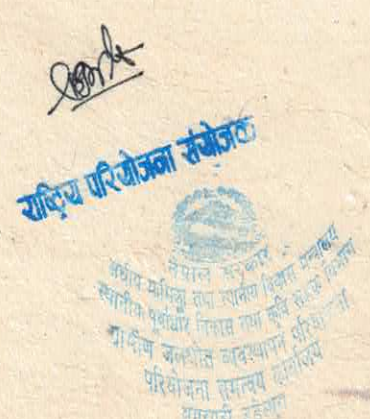 राष्ट्रिय परियोजना संयोजक
नेपाल सरकार
संघीय मामिला तथा स्थानीय विकास मन्त्रालय
स्थानीय पूर्वाधार विकास तथा कृषि सडक विभाग
ग्रामीण जलश्रोत व्यवस्थापन परियोजना
परियोजना समन्वय कार्यालय